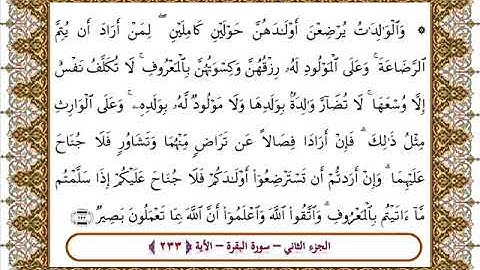 ۞ وَٱلْوَٰلِدَٰتُ يُرْضِعْنَ أَوْلَٰدَهُنَّ حَوْلَيْنِ كَامِلَيْنِ ۖ لِمَنْ أَرَادَ أَن يُتِمَّ
ٱلرَّضَاعَةَ ۚ وَعَلَى ٱلْمَوْلُودِ لَهُۥ رِزْقُهُنَّ وَكِسْوَتُهُنَّ بِٱلْمَعْرُوفِ ۚ لَا تُكَلَّفُ نَفْسٌ
إِلَّا وُسْعَهَا ۚ لَا تُضَآرَّ وَٰلِدَةٌۢ بِوَلَدِهَا وَلَا مَوْلُودٌ لَّهُۥ بِوَلَدِهِۦ ۚ وَعَلَى ٱلْوَارِثِ
مِثْلُ ذَٰلِكَ ۗ فَإِنْ أَرَادَا فِصَالًا عَن تَرَاضٍ مِّنْهُمَا وَتَشَاوُرٍ فَلَا جُنَاحَ
عَلَيْهِمَا ۗ وَإِنْ أَرَدتُّمْ أَن تَسْتَرْضِعُوٓا۟ أَوْلَٰدَكُمْ فَلَا جُنَاحَ عَلَيْكُمْ إِذَا سَلَّمْتُم
مَّآ ءَاتَيْتُم بِٱلْمَعْرُوفِ ۗ وَٱتَّقُوا۟ ٱللَّهَ وَٱعْلَمُوٓا۟ أَنَّ ٱللَّهَ بِمَا تَعْمَلُونَ بَصِيرٌ ﴿٢٣٣﴾
الجزء الثاني – سورة البقرة – الأية ﴿ ٢٣٣ ﴾